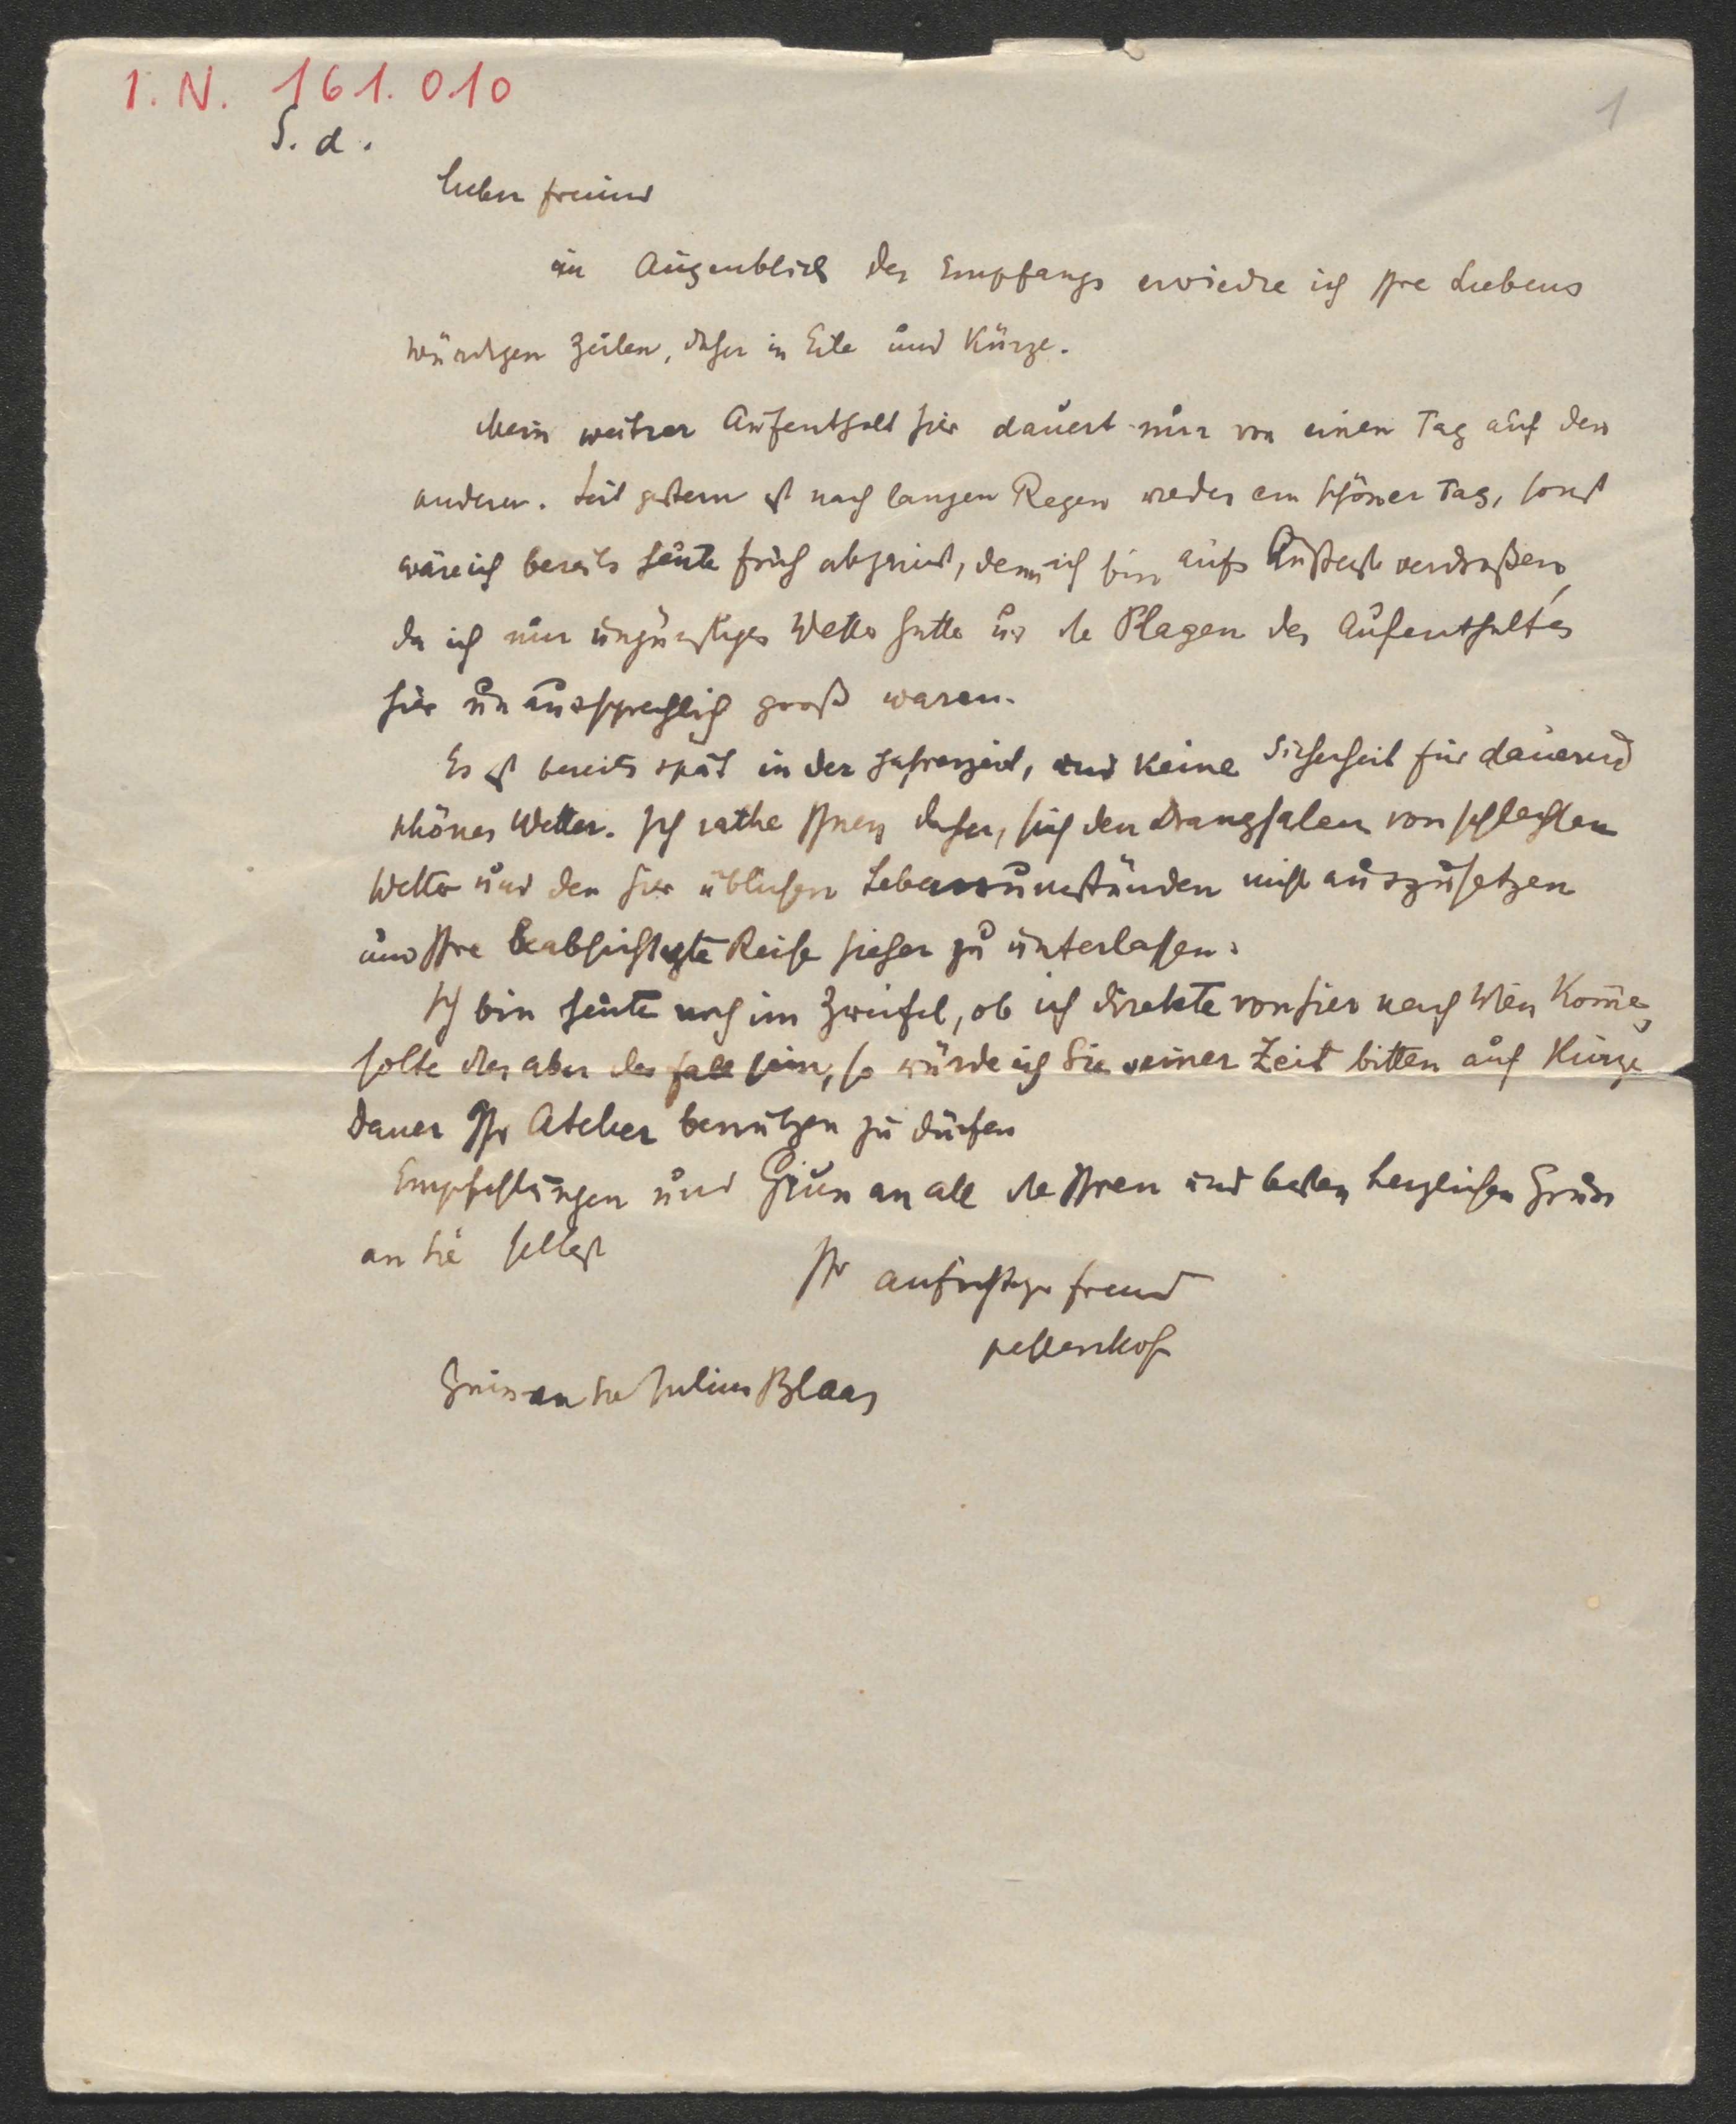 I. N. 161.010
1
S. d.
Lieber Freund
im Augenblick des Empfangs erwiedre ich Ihre Liebens
würdigen Zeilen, daher in Eile und Kürze.
Mein weitrer Aufenthalt hier dauert nur von einen Tag auf den
anderen. Seit gestern ist nach langen Regen wieder ein schöner Tag, sonst
wäre ich bereits heute früh abgereist, denn ich bin aufs Äußerste verdroßen,
da ich nur ungünstiges Wetter hatte u die Plagen des Aufenthaltes
hier unaussprechlich groß waren.
Es ist bereits spät in der Jahreszeit, und keine Sicherheit für dauernd
schönes Wetter. Ich rathe Ihnen daher, sich den Drangsalen von schlechten
Wetter und den hier üblichen Lebensumständen nicht auszusetzen
und Ihre beabsichtigte Reise hieher zu unterlassen.
Ich bin heute noch im Zweifel, ob ich direkte von hier nach Wien kom̅e,
solte dies aber der Fall sein, so würde ich Sie seiner Zeit bitten auf kurze
Dauer Ihr Atelier benutzen zu dürfen
Empfehlungen und Gruss an all die Ihren und besten herzlichen Gruss
an Sie selbst
Ihr aufrichtiger Freund
Pettenkof
Gruss an Julius Blaas